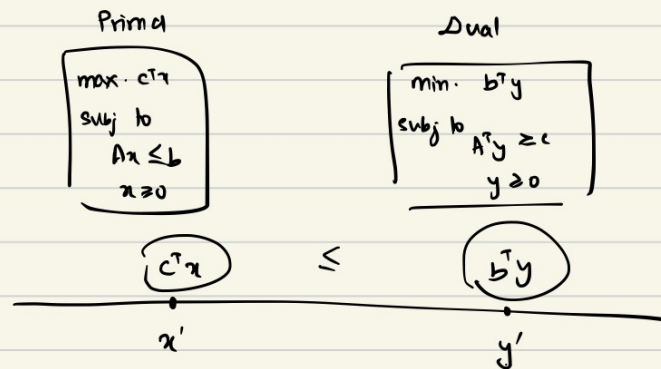 Primal
max. cᵀx
subj to
Ax ≤ b
x ≥ 0
Dual
min. bᵀy
subj to
Aᵀy ≥ c
y ≥ 0
cᵀx ≤ bᵀy
x' y'